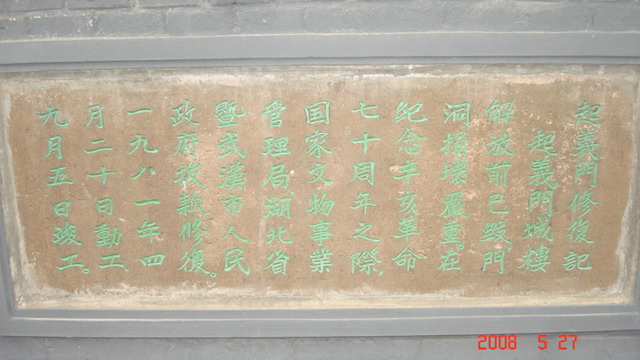 起義門修復記
起義門城樓
解放前已毀,門
洞損壞嚴重。在
紀念辛亥革命
七十周年之際,
国家文物事業
管理局湖北省
暨武漢市人民
政府拔款修復。
一九八一年四
月二十日動工、
九月五日竣工。
2008 5 27